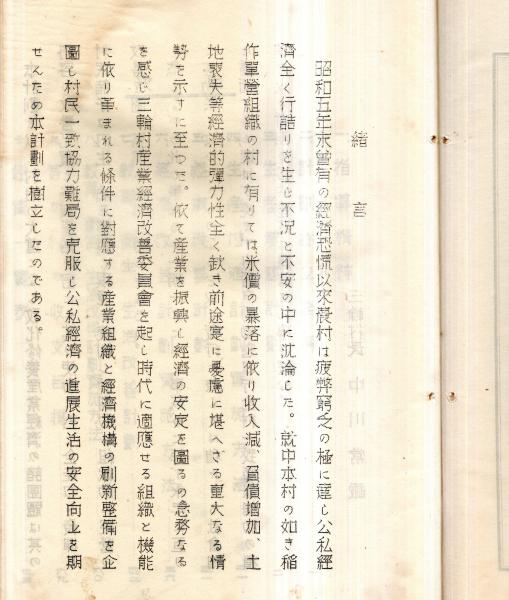 緒言
昭和五年末曾有の經濟恐慌以來農村は疲弊窮乏の極に達し公私經
濟全く行詰りを生じ不況と不安の中に沈淪した。就中本村の如き稲
作單營組織の村に有りては米價の暴落に依り收入減、負債增加、土
地喪失等經濟的彈力性全く欽き前途寔に憂慮に堪へざる重大なる情
勢を示すに至つた。依て産業を振興し經濟の安定を圖るの急務なる
を感じ三輪村産業經濟改善委員會を起し時代に適應せる組織と機能
に依り惠まれる條件に對應する産業組織と經濟機構の刷新整備を企
圖し村民一致協力難局を克服し公私經濟の進展生活の安全向上を期
せんため本計劃を樹立したのである。